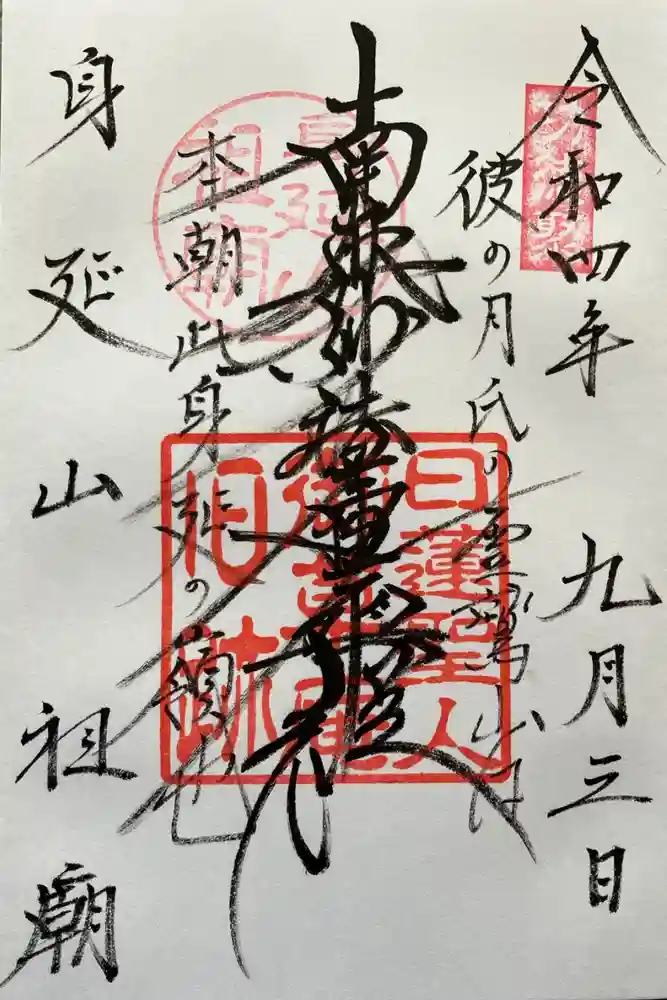 令和四年 九月三日
彼の月氏の霊鷲山は
南無妙法蓮華経
本朝此身延の嶺也
身延山祖廟
身延山
祖廟
日蓮聖人
御草庵
旧跡